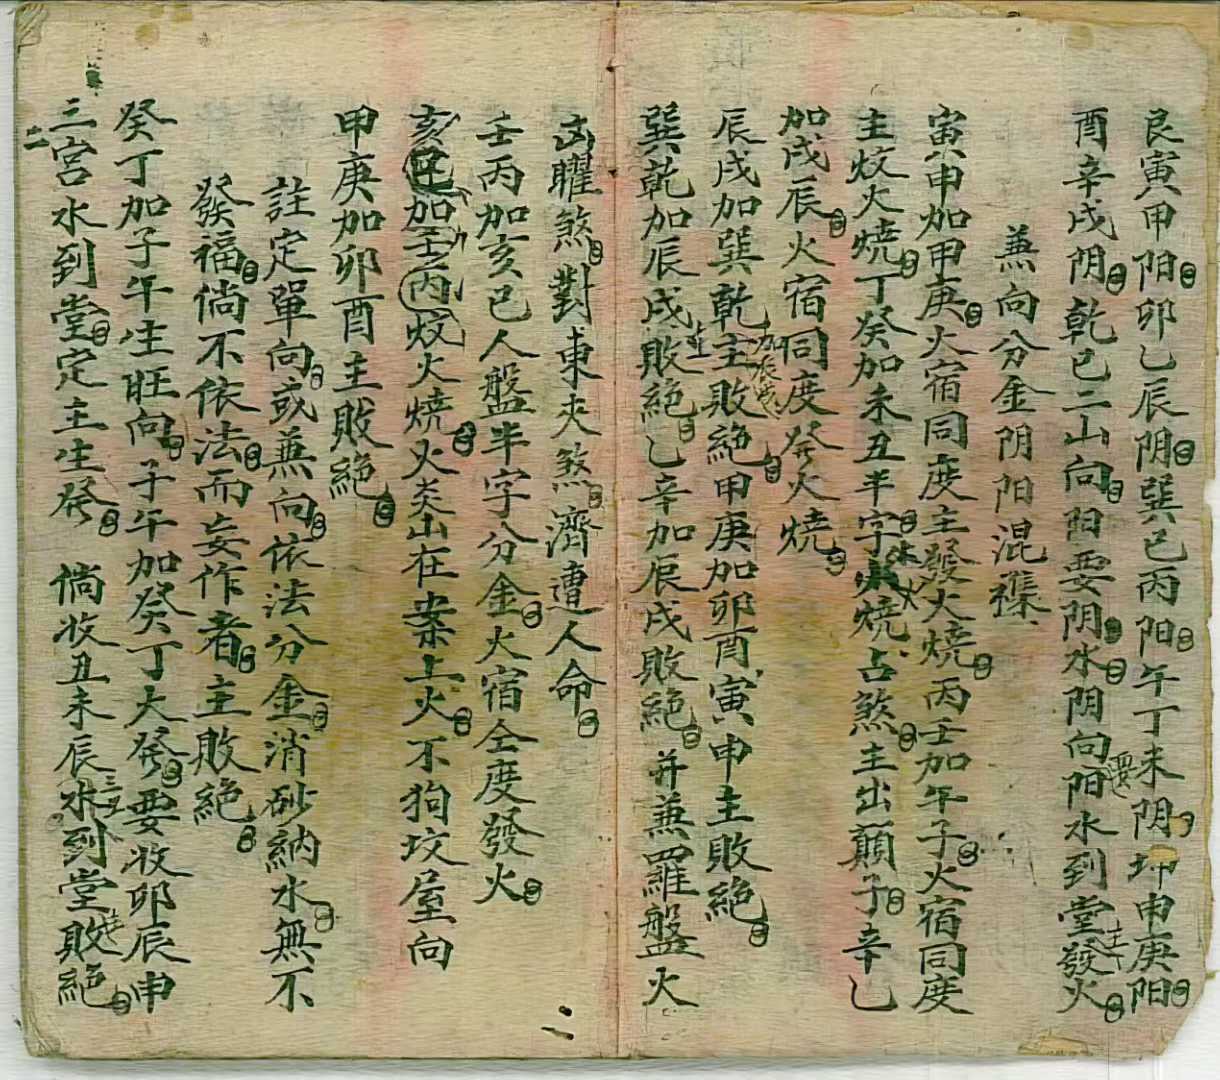 艮寅甲阳卯乙辰阴巽巳丙阳午丁未阴坤申庚阳
酉辛戌阴乾巳二山向阳要阴水阴向要阳水到堂主發火
兼向分金阴阳混襍
寅申加甲庚火宿同度主發火燒丙壬加午子火宿同度
主炆火燒丁癸加未丑半字火燒占煞主出顛子辛乙
加戌辰火宿同度癸火燒
辰戌加巽乾加辰戌主敗絕甲庚加卯酉寅申主敗絕
巽乾加辰戌主敗絕乙辛加辰戌敗絕并兼羅盤火
凶曜煞對東夾煞濟遭人命
壬丙加亥巳人盤半字分金火宿仝度發火
亥巳加壬丙炆火燒火炎山在案上火不狗坟屋向
甲庚加卯酉主敗絕
註定單向或兼向依法分金消砂納水無不
發福倘不依法而妄作者主敗絕
癸丁加子午生旺向子午加癸丁大癸要收卯辰申
三宮水到堂定主生癸倘收丑未辰三叉水到堂主敗絕